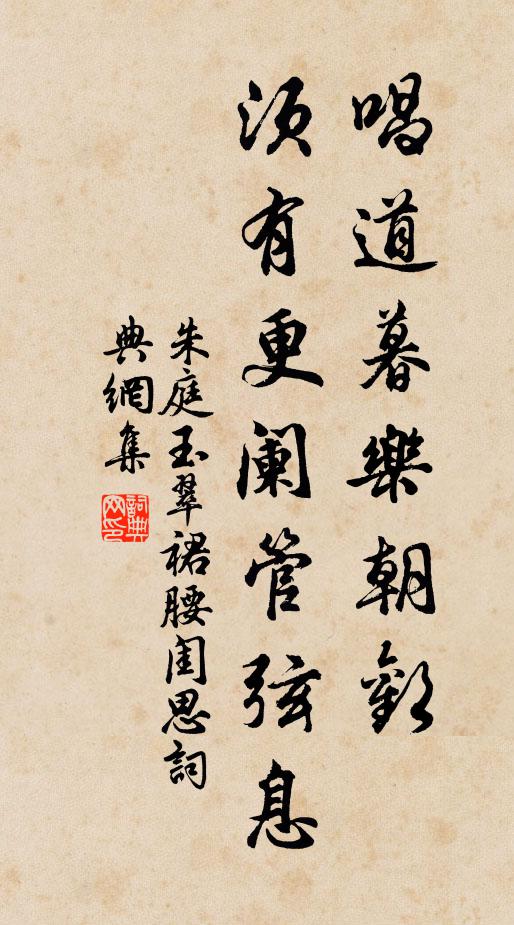 唱道暮樂朝歡
須有更阑管弦息
朱庭玉翠裙腰闺思詞
典網集
詞典網印